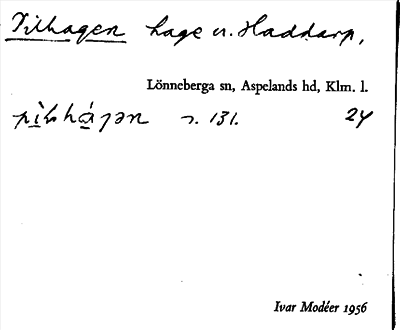 Pilhagen hage n. Haddarp,
Lönneberga sn, Aspelands hd, Klm. l.
s. 131. 24
Ivar Modéer 1956